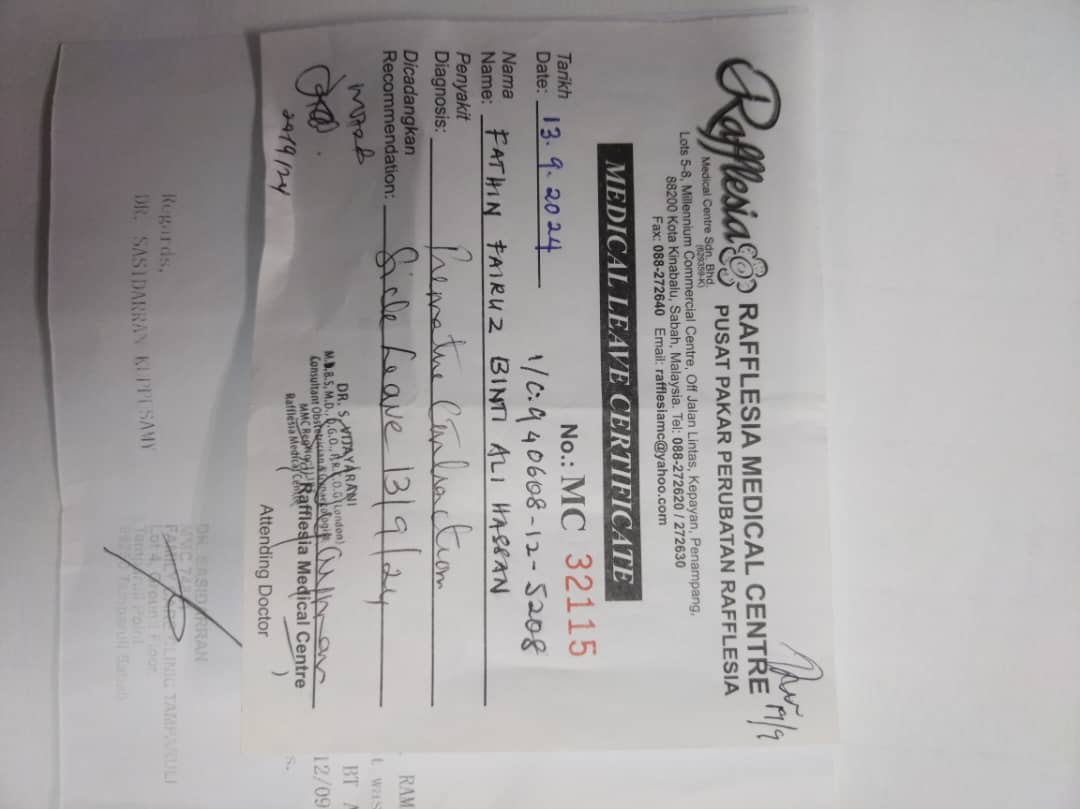 Rafflesia
Medical Centre Sdn. Bhd.
(629359-K)
RAFFLESIA MEDICAL CENTRE
19/9
PUSAT PAKAR PERUBATAN RAFFLESIA
Lots 5-8, Millennium Commercial Centre, Off Jalan Lintas, Kepayan, Penampang,
88200 Kota Kinabalu, Sabah, Malaysia. Tel: 088-272620 / 272630
Fax: 088-272640 Email: rafflesiamc@yahoo.com
MEDICAL LEAVE CERTIFICATE
Tarikh
Date: 13.9.2024
No.: MC 32115
I/C: 940608-12-5208
Nama
Name: FATHIN FAIRUZ BINTI ALI HASSAN
Penyakit
Diagnosis: Premature Contraction
Dicadangkan
Recommendation: Sick Leave 13/9/24
DR. S. VIJAYARANI
M.B.B.S, M.D., D.G.O., M.R.C.O.G (London)
Consultant Obstetrician & Gynaecologist
MMC Reg No:
Rafflesia Medical Centre
Rafflesia Medical Centre
Attending Doctor
RAM
t was
BT A
12/09
s.
Regards,
DR. SASIDARRAN KUPPUSAMY
DR. SASIDARRAN
MMC
FAMILY CARE CLINIC TAMPARULI
Lot 4, Ground Floor
Tamparuli Point
Tamparuli Sabah